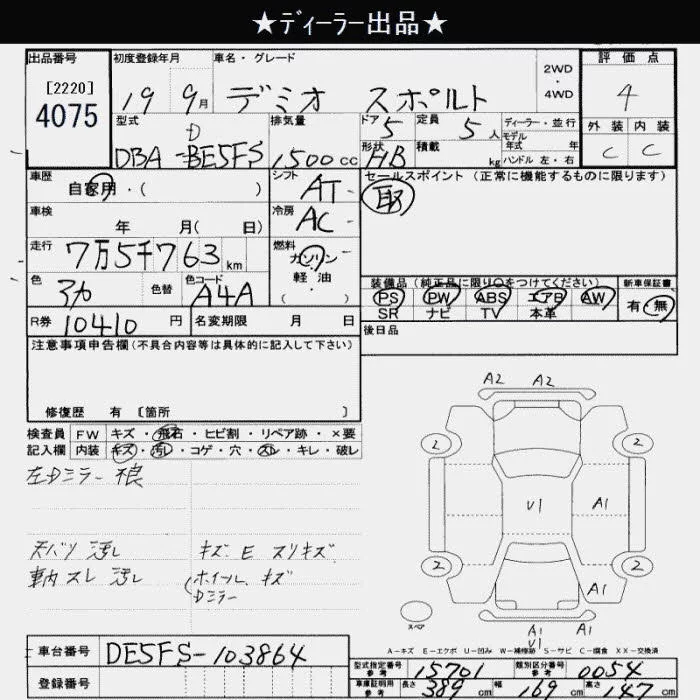 ★ディーラー出品★
出品番号 初度登録年月 車名・グレード 2WD・4WD 評価点
[2220]
4075
19 9月 デミオ スポルト 4
型式 排気量 ドア 5 定員 5人 ディーラー・並行
モデル年式 年
外装 内装
D
DBA-DE5FS 1500cc 形状 HB 積載 kg ハンドル 左・右 C C
車歴 自家用・( ) シフト AT セールスポイント (正常に機能するものに限ります)
取
車検 年 月( 日) 冷房 AC
走行 7万5千763km 燃料 ガソリン・軽油・( )
色 色替 色コード A4A 装備品(純正品に限り○をつけてください) 新車保証書
PS PW ABS エアB AW 有・無
SR ナビ TV 本革
R券 10410円 名変期限 月 日 後日品
注意事項申告欄(不具合内容等は具体的に記入して下さい)
修復歴 有 〔箇所 〕
検査員 FW キズ・飛石・ヒビ割・リペア跡・×要
記入欄 内装 キズ・汚レ・コゲ・穴・スレ・キレ・破レ
左Dミラー 不良
天バリ 汚レ キズ E スリキズ
車内 スレ 汚レ (ホイール キズ
Dミラー
A2 A2
2 2
U1 A1
2 2
A1
スペア
A1 A1
U1
A-キズ E-エクボ U-凹み W-補修跡 S-サビ C-腐食 XX-交換済
車台番号 DE5FS-103864
登録番号
型式指定番号 参考 15701 類別区分番号 参考 0054
車庫証明用 参考 長さ 389cm 幅 169cm 高さ cm